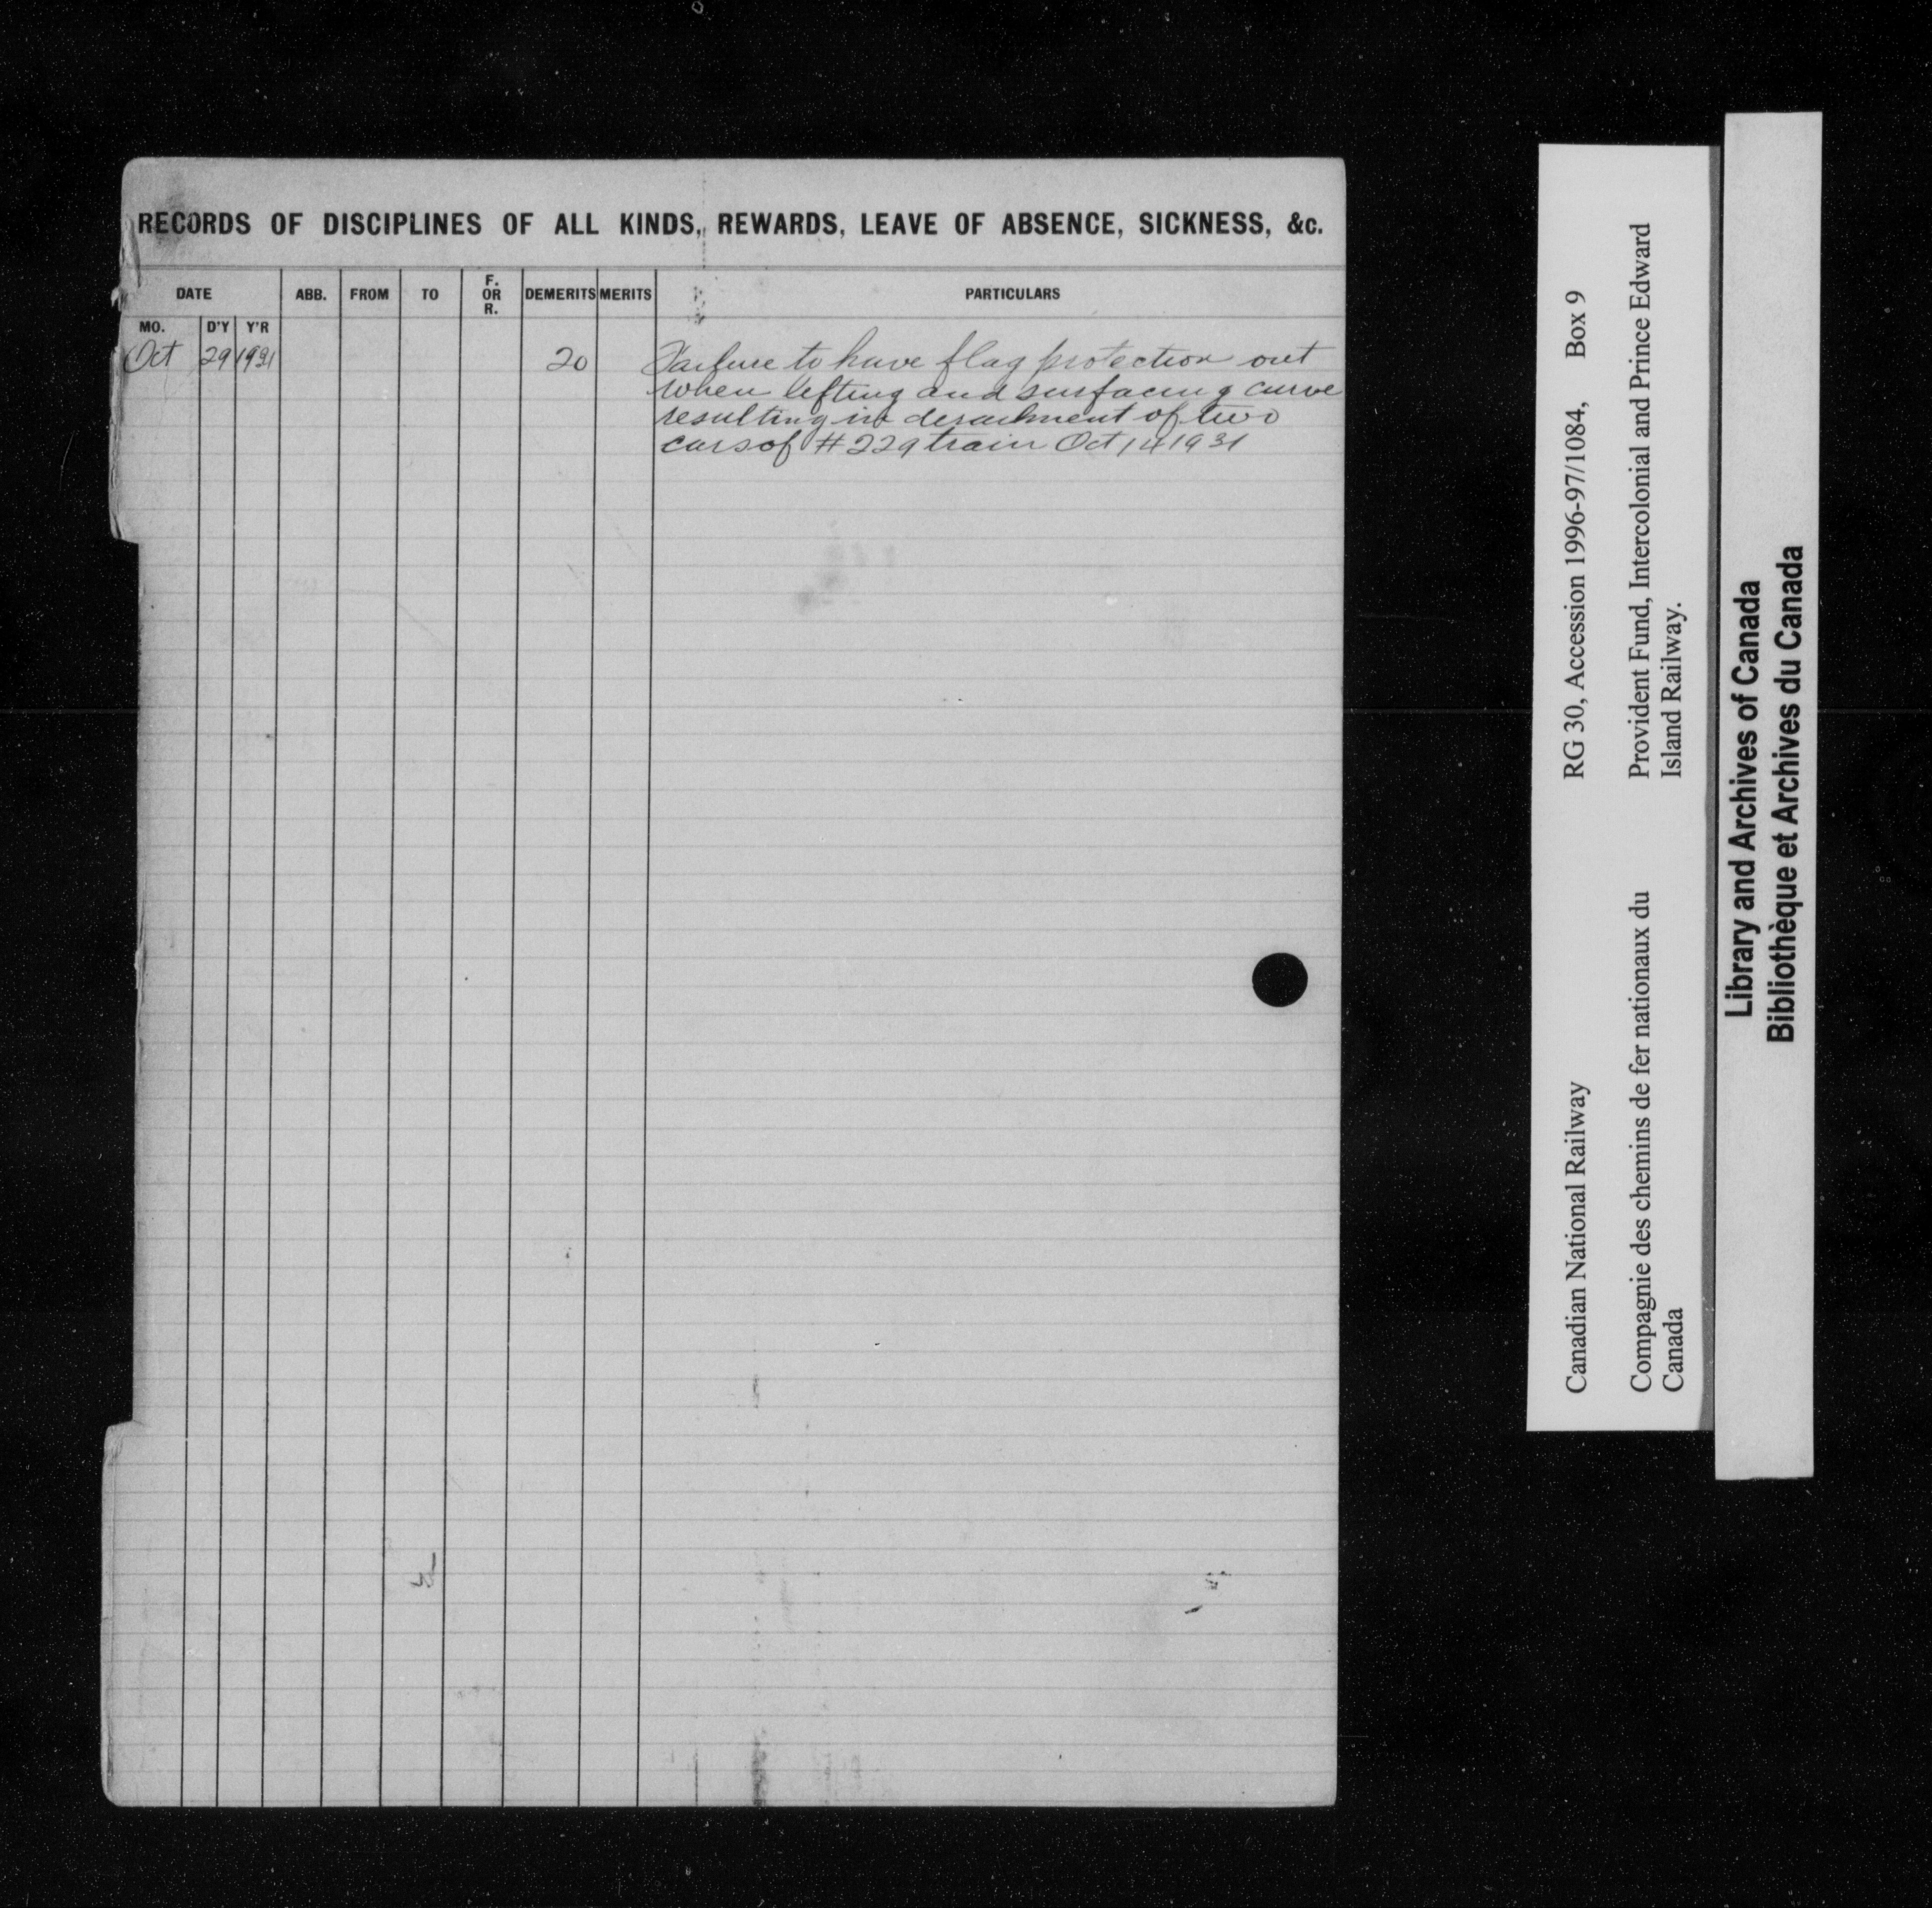 RECORDS OF DISCIPLINES OF ALL KINDS, REWARDS, LEAVE OF ABSENCE, SICKNESS, &c.
DATE ABB. FROM TO F. OR R. DEMERITS MERITS PARTICULARS
MO. D'Y Y'R
Oct 29 1931 20 Failure to have flag protection out
when lifting and surfacing curve
resulting in derailment of two
cars of #229 train Oct 14 1931
Canadian National Railway RG 30, Accession 1996-97/1084, Box 9
Compagnie des chemins de fer nationaux du Provident Fund, Intercolonial and Prince Edward
Canada Island Railway.
Library and Archives of Canada
Bibliothèque et Archives du Canada